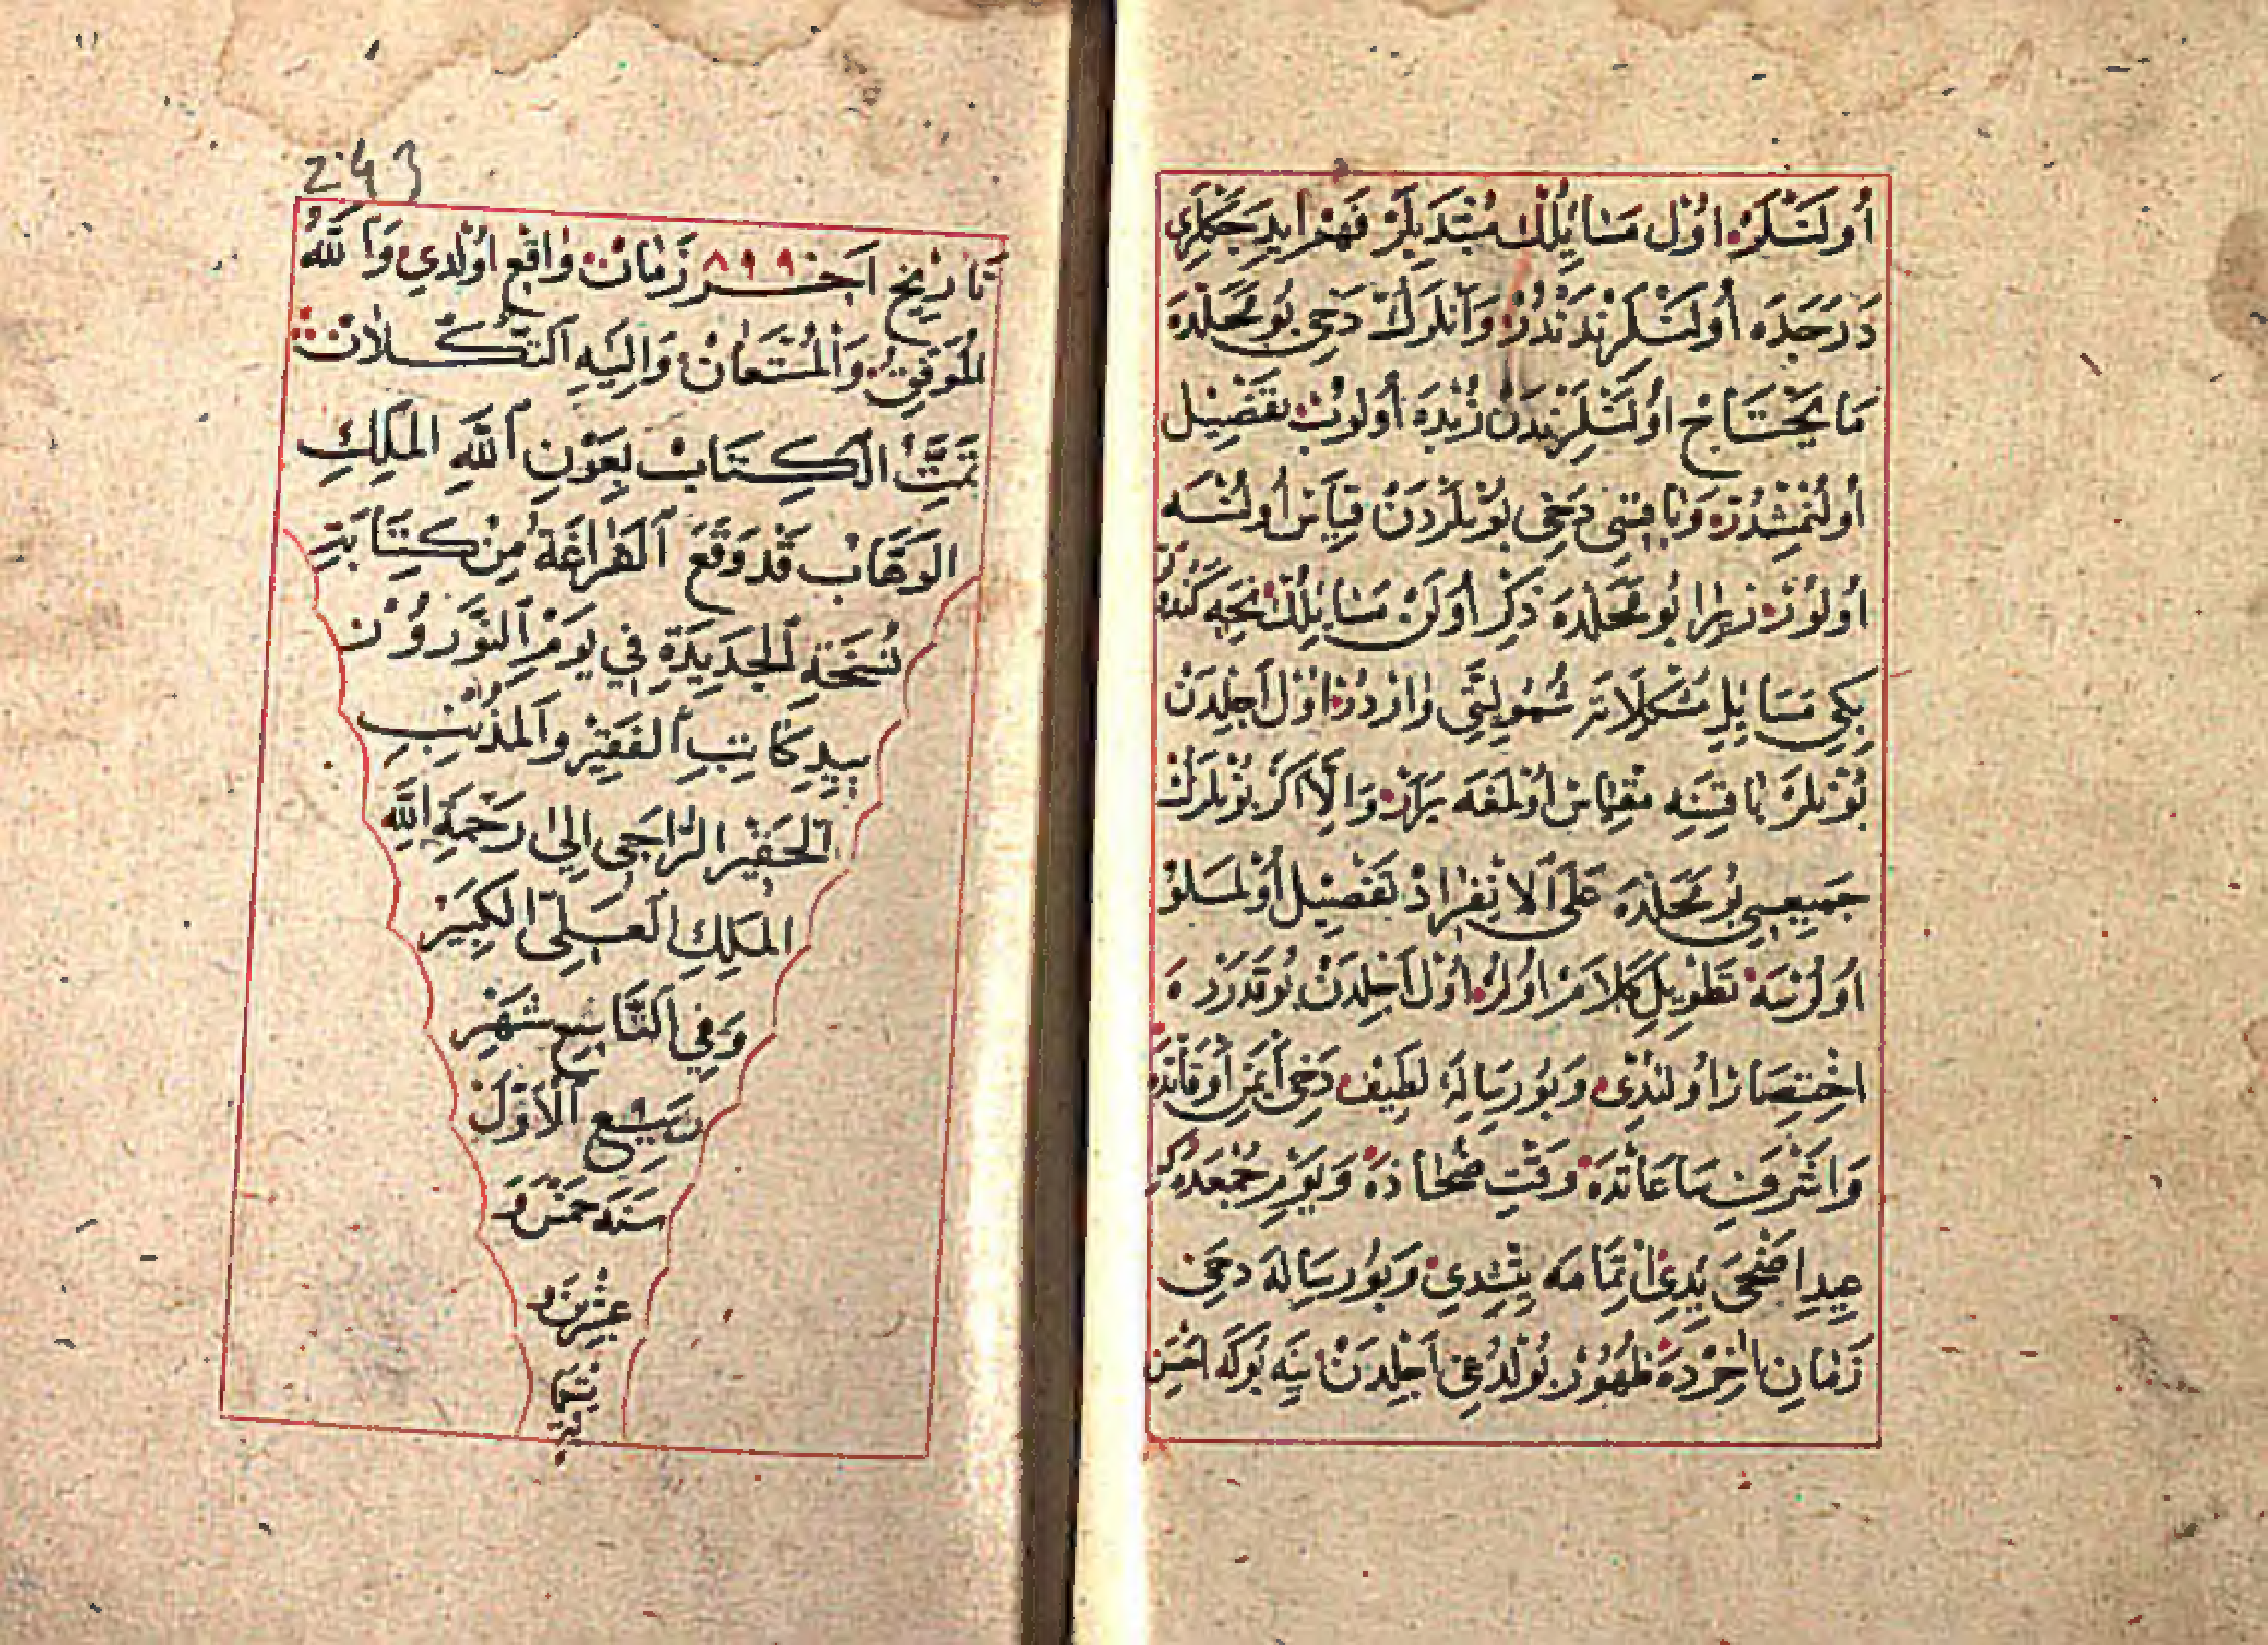 أُولَنْلَرْ اوُلْ مَسَائِلْكْ مُبْتَدِيلَرْ فَهْمْ ايدَجَكْلَرِي
دَرَجَدَه أُولَنْلَرِنْدَنْدُرْ وَانْلَرِكْ دَخِي بُو مَحَلْدَه
مَا يَحْتَاجْ اوُلَنْلَرِنْدَنْ زُبْدَه أُولُوبْ تَفْصِيلْ
أُولُنْمِشْدُرْ وَبَاقِيسِي دَخِي بُونْلَرْدَنْ قِيَاسْ أُولُنْسَه
أُولُورْ زِيرَا بُو مَحَلْدَه ذِكْرْ اوُلَنْ مَسَائِلِكْ نِيجَه كَنْدُو
كِبِي مَسَائِلِ مُشْكِلَاتَه شُمُولِيتِي وَارْدُرْ اوُلْ اَجِلْدَنْ
بُونْلَرْ بَاقِيسِنَه مِقْيَاسْ اوُلْمَغَه يَرَارْ وَاِلَّا اَكَرْ بُونْلَرِكْ
جَمِيعِسِي بُو مَحَلْدَه عَلَى الْاِنْفِرَادْ تَفْصِيلْ أُولْمَسَلُو
أُولُرْسَه تَطْوِيلِ كَلَامْ اوُلُرْ اوُلْ اَجِلْدَنْ بُو قَدَرْدَه
اِخْتِصَارْ أُولُنْدِي وَبُو رِسَالَهٔ لَطِيفْ دَخِي اَيْمَنِ أَوْقَاتْدَه
وَاَشْرَفِ سَاعَاتْدَه وَقْتِ ضُحَادَه وَيَوْمِ جُمْعَدَه كِه
عِيدِ اَضْحَى يِدِي اِتْمَامَه يِتِشْدِي وَبُو رِسَالَه دَخِي
زَمَانِ اٰخِرْدَه ظُهُورْ بُولْدُغِي اَجِلْدَنْ يِنَه بُوكَه اخسن
243
تَارِيخْ اَخِرْ ٨٩٩ زَمَانْ وَاقِعْ اوُلْدِي وَاللّٰهُ
الْمُوَفِّقُ وَالْمُسْتَعَانْ وَاِلَيْهِ التُّكْلَانْ
تَمَّتْ الْكِتَابْ بِعَوْنِ اللّٰهِ الْمَلِكِ
الْوَهَّابْ قَدْ وَقَعَ الْفَرَاغَةُ مِنْ كِتَابَةِ
نُسْخَةِ الْجَدِيدَةِ فِي يَوْمِ النَّوْرُوزْ
بِيَدِ كَاتِبِ الْفَقِيْرْ وَالْمُذْنِبِ
الْحَقِيْرْ الرَّاجِي اِلَى رَحْمَةِ اللّٰهِ
الْمَلِكِ الْعَلِيِّ الْكَبِيْرْ
وَفِي التَّاسِعِ شَهْرِ
رَبِيعِ الْاَوَّلْ
سَنَه خَمْسْ وَ
عِشْرِينْ وَ